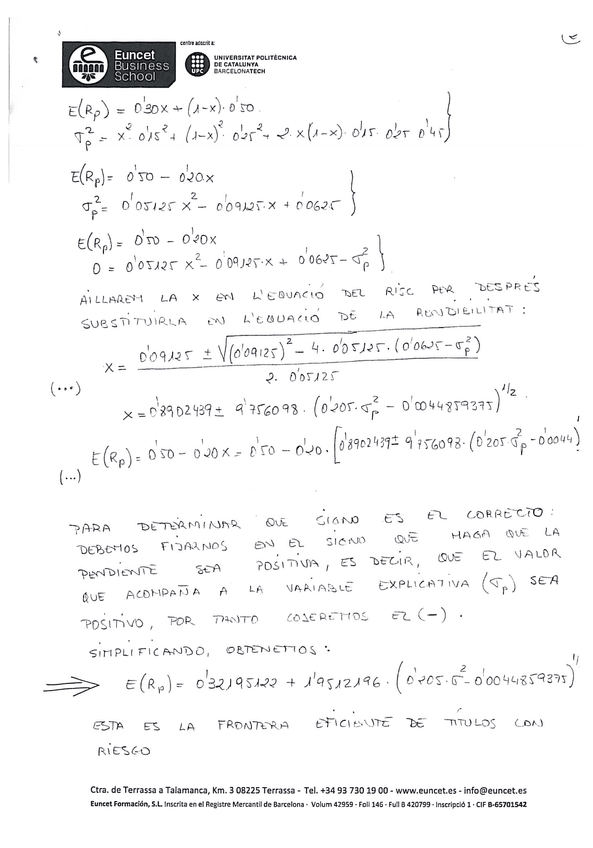 centre adscrit a:
Euncet
Business
School
UPC
UNIVERSITAT POLITÈCNICA
DE CATALUNYA
BARCELONATECH
E(Rp) = 0'30x + (1-x)·0'50
σp² = x²·0'15² + (1-x)²·0'25² + 2·x(1-x)·0'15·0'25·0'45
E(Rp) = 0'50 - 0'20x
σp² = 0'05125 x² - 0'09125·x + 0'0625
E(Rp) = 0'50 - 0'20x
0 = 0'05125 x² - 0'09125·x + 0'0625 - σp²
AÏLLAREM LA X EN L'EQUACIÓ DEL RISC PER DESPRÉS
SUBSTITUIRLA EN L'EQUACIÓ DE LA RENDIBILITAT:
x = (0'09125 ± √((0'09125)² - 4·0'05125·(0'0625-σp²))) / (2·0'05125)
(...)
x = 0'8902439 ± 9'756098·(0'205·σp² - 0'0044859375)^1/2
E(Rp) = 0'50 - 0'20x = 0'50 - 0'20·[0'8902439 ± 9'756098·(0'205·σp² - 0'0044)
(...)
PARA DETERMINAR QUE SIGNO ES EL CORRECTO:
DEBEMOS FIJARNOS EN EL SIGNO QUE HAGA QUE LA
PENDIENTE SEA POSITIVA, ES DECIR, QUE EL VALOR
QUE ACOMPAÑA A LA VARIABLE EXPLICATIVA (σp) SEA
POSITIVO, POR TANTO COGEREMOS EL (-).
SIMPLIFICANDO, OBTENEMOS:
⇒ E(Rp) = 0'32195122 + 1'9512196·(0'205·σ² - 0'0044859375)^1/
ESTA ES LA FRONTERA EFICIENTE DE TÍTULOS CON
RIESGO
Ctra. de Terrassa a Talamanca, Km. 3 08225 Terrassa - Tel. +34 93 730 19 00 - www.euncet.es - info@euncet.es
Euncet Formación, S.L. Inscrita en el Registre Mercantil de Barcelona - Volum 42959 - Foli 146 - Full B 420799 - Inscripció 1 - CIF B-65701542